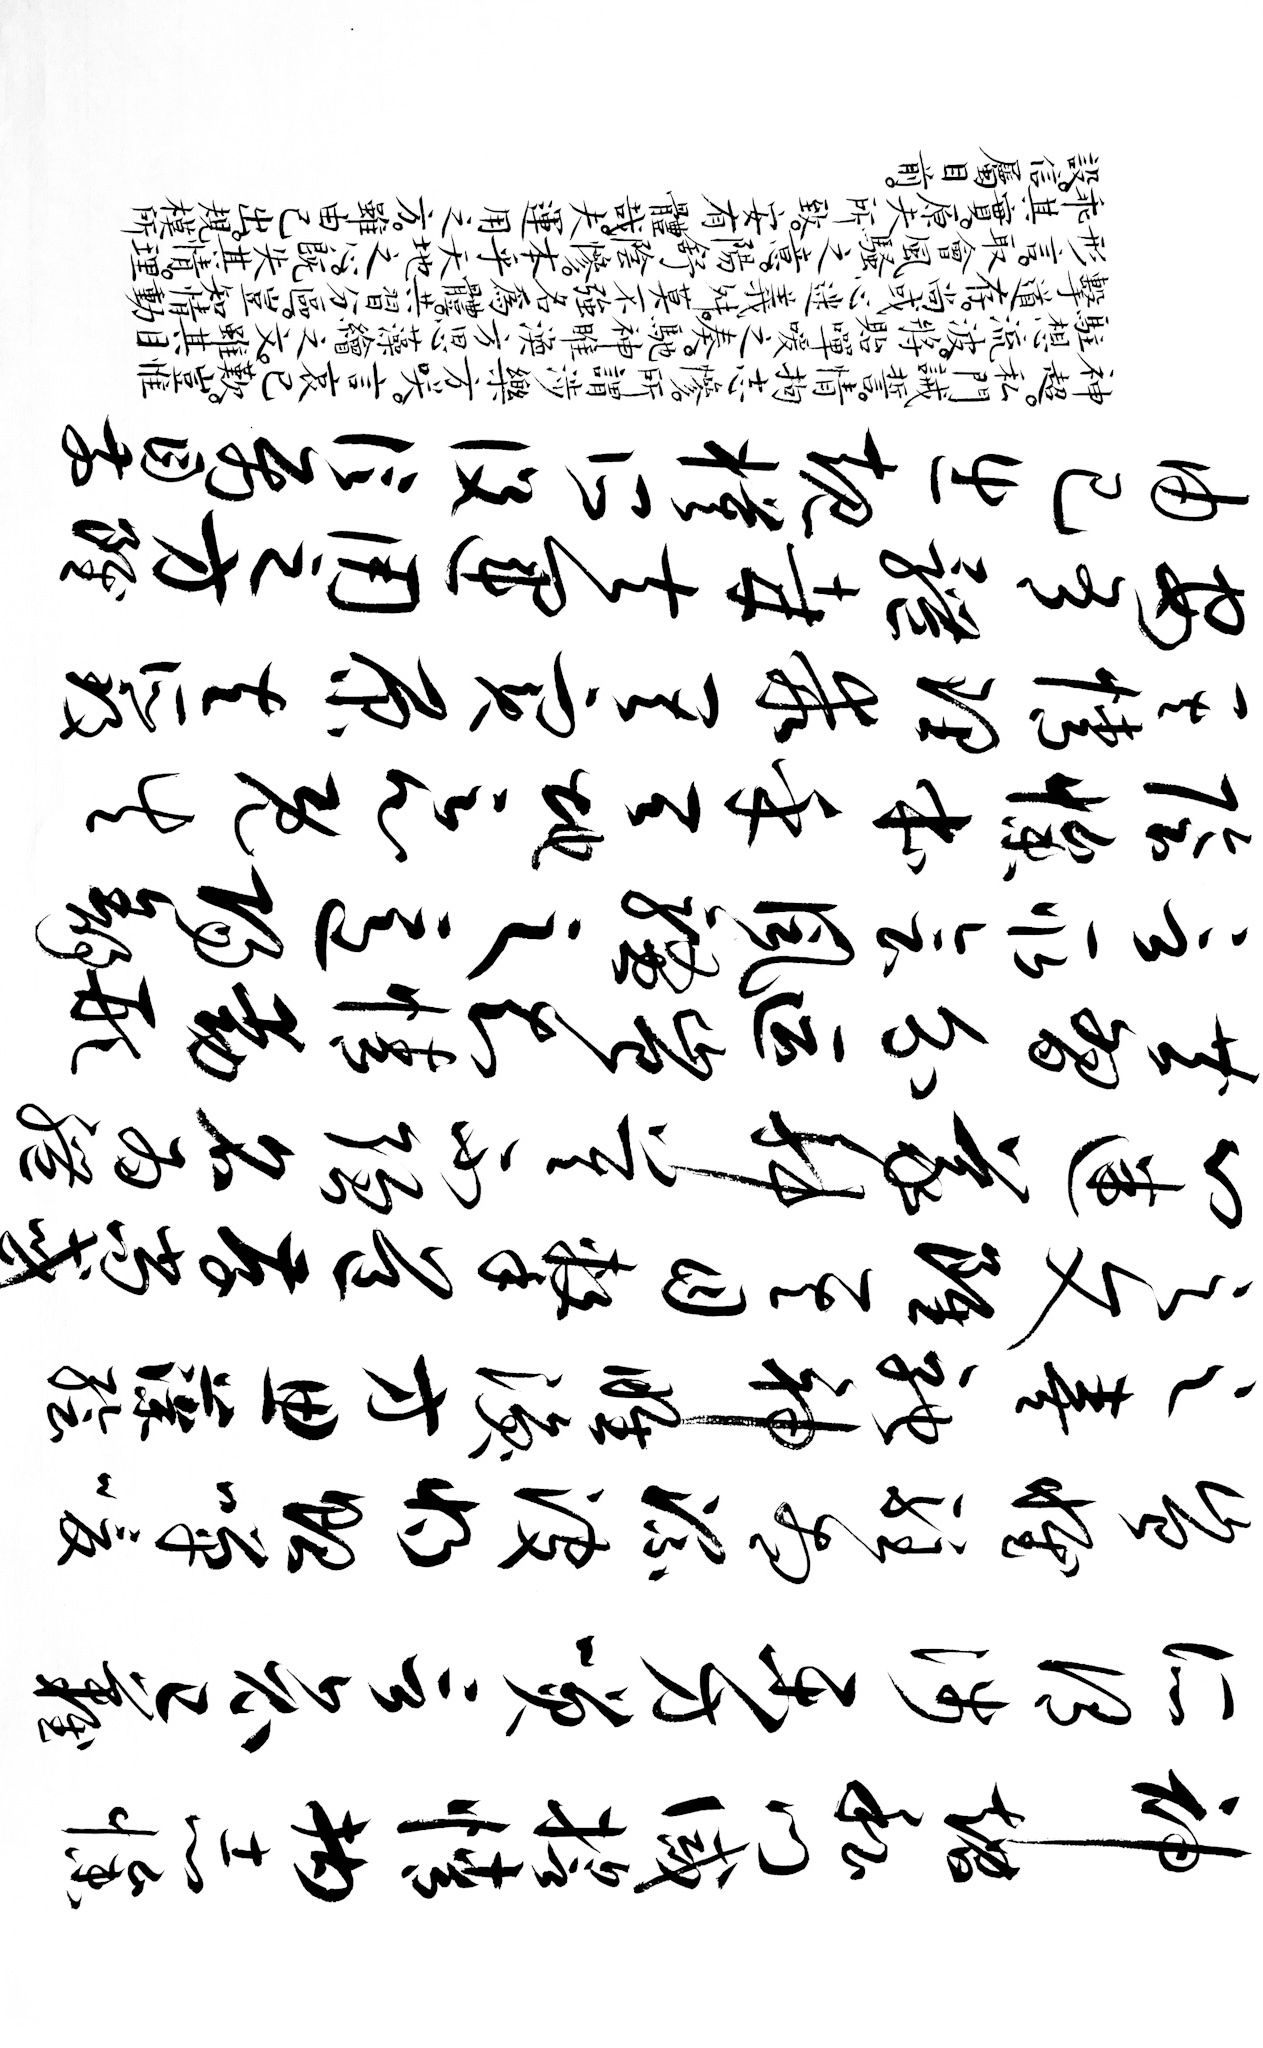 神超私門誡誓情拘志慘
所謂涉樂方笑言哀已歎
豈惟駐想流波將貽嘽噯
之奏馳神睢渙方思藻繪
之文雖其目擊道存尚或
心迷義舛莫不強名為體
共習分區豈知情動形
言取會風騷之意陽舒
陰慘本乎天地之心既失
其情理乖其實原夫所致
安有體哉夫運用之方雖
由己出規模所設信屬目前
神超私門誡誓。情拘志慘。所謂涉樂方笑。言哀已歎。豈惟
駐想流波。將貽嘽噯之奏。馳神睢渙方思藻繪之文。雖其目
擊道存。尚或心迷義舛。莫不強名為體。共習分區。豈知情動
形言。取會風騷之意。陽舒陰慘。本乎天地之心。既失其情。理
乖其實。原夫所致。安有體哉。夫運用之方。雖由己出。規模所
設。信屬目前。